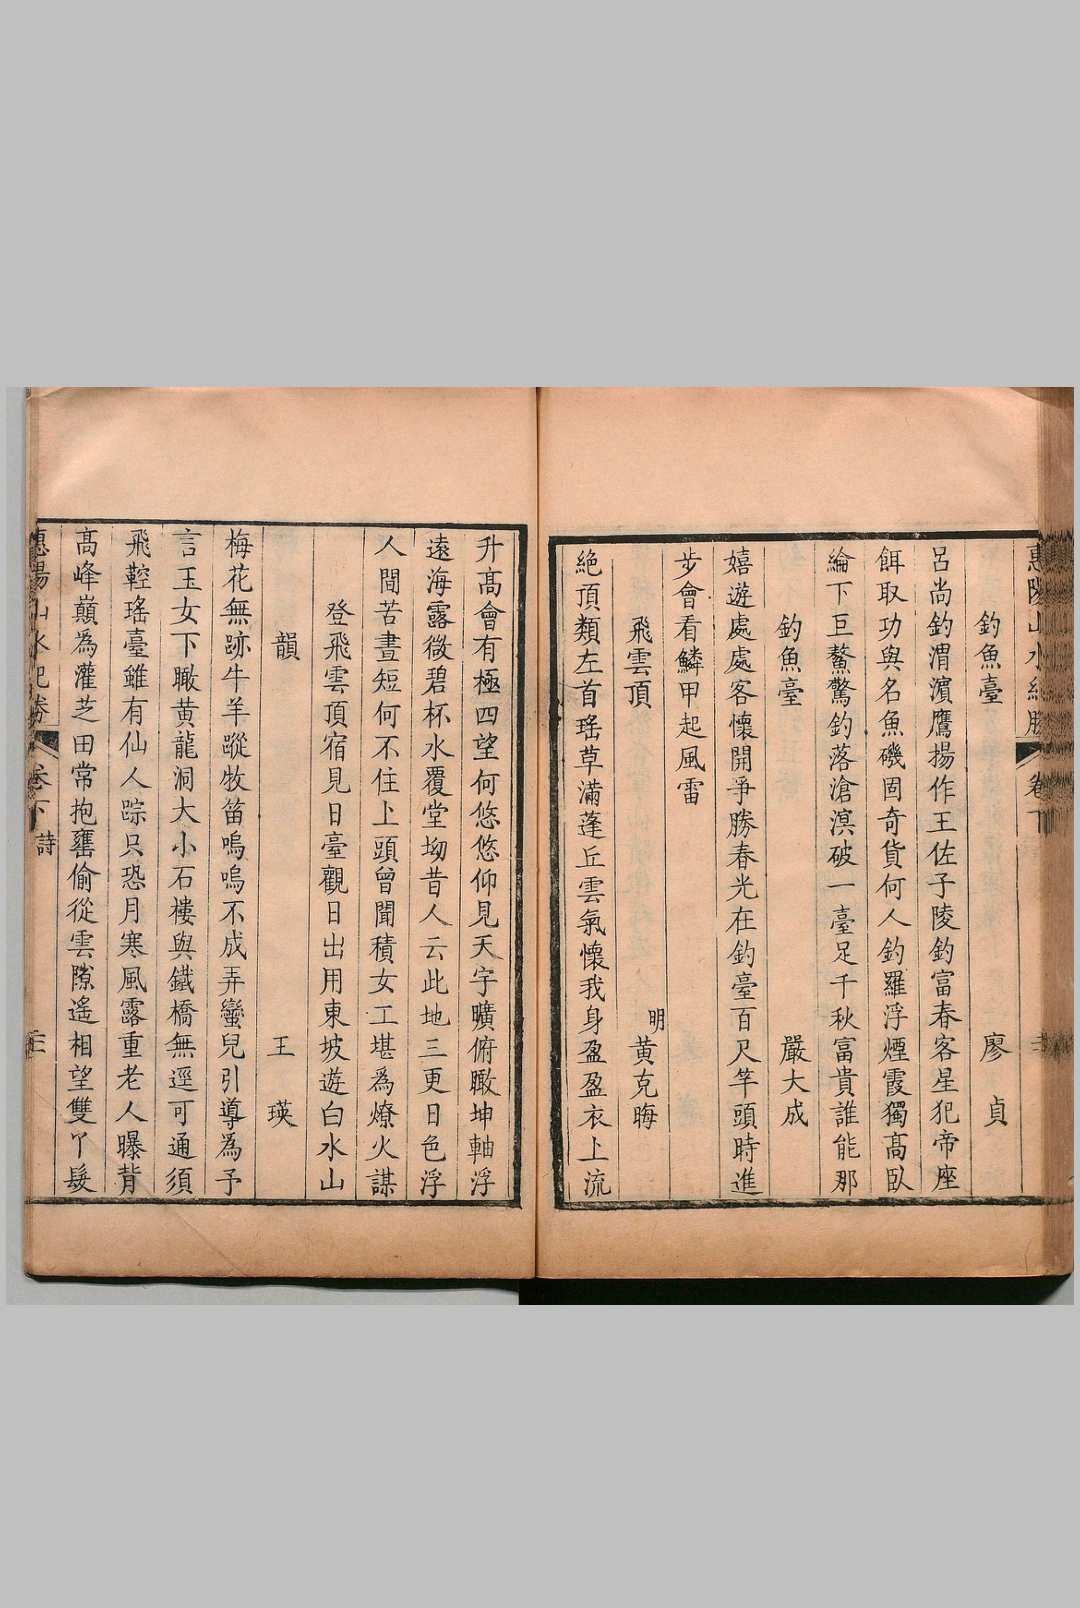 惠陽山水紀勝 卷下
釣魚臺 廖 貞
呂尚釣渭濱鷹揚作王佐子陵釣富春客星犯帝座
餌取功與名魚磯固奇貨何人釣羅浮煙霞獨高臥
綸下巨鰲驚釣落滄溟破一臺足千秋富貴誰能那
釣魚臺 嚴大成
嬉遊處處客懷開爭勝春光在釣臺百尺竿頭時進
步會看鱗甲起風雷
飛雲頂 明 黃克晦
絕頂類左首瑤草滿蓬丘雲氣懷我身盈盈衣上流
升高會有極四望何悠悠仰見天宇曠俯瞰坤軸浮
遠海露微碧杯水覆堂坳昔人云此地三更日色浮
人間苦晝短何不住上頭曾聞積女工堪為燎火謀
登飛雲頂宿見日臺觀日出用東坡遊白水山
韻 王 瑛
梅花無跡牛羊蹤牧笛嗚嗚不成弄蠻兒引導為予
言玉女下瞰黃龍洞大小石樓與鐵橋無逕可通須
飛鞚瑤臺雖有仙人踪只恐月寒風露重老人曝背
高峰巔為灌芝田常抱罋偷從雲隙遙相望雙丫髮
惠陽山水紀勝 卷下 詩